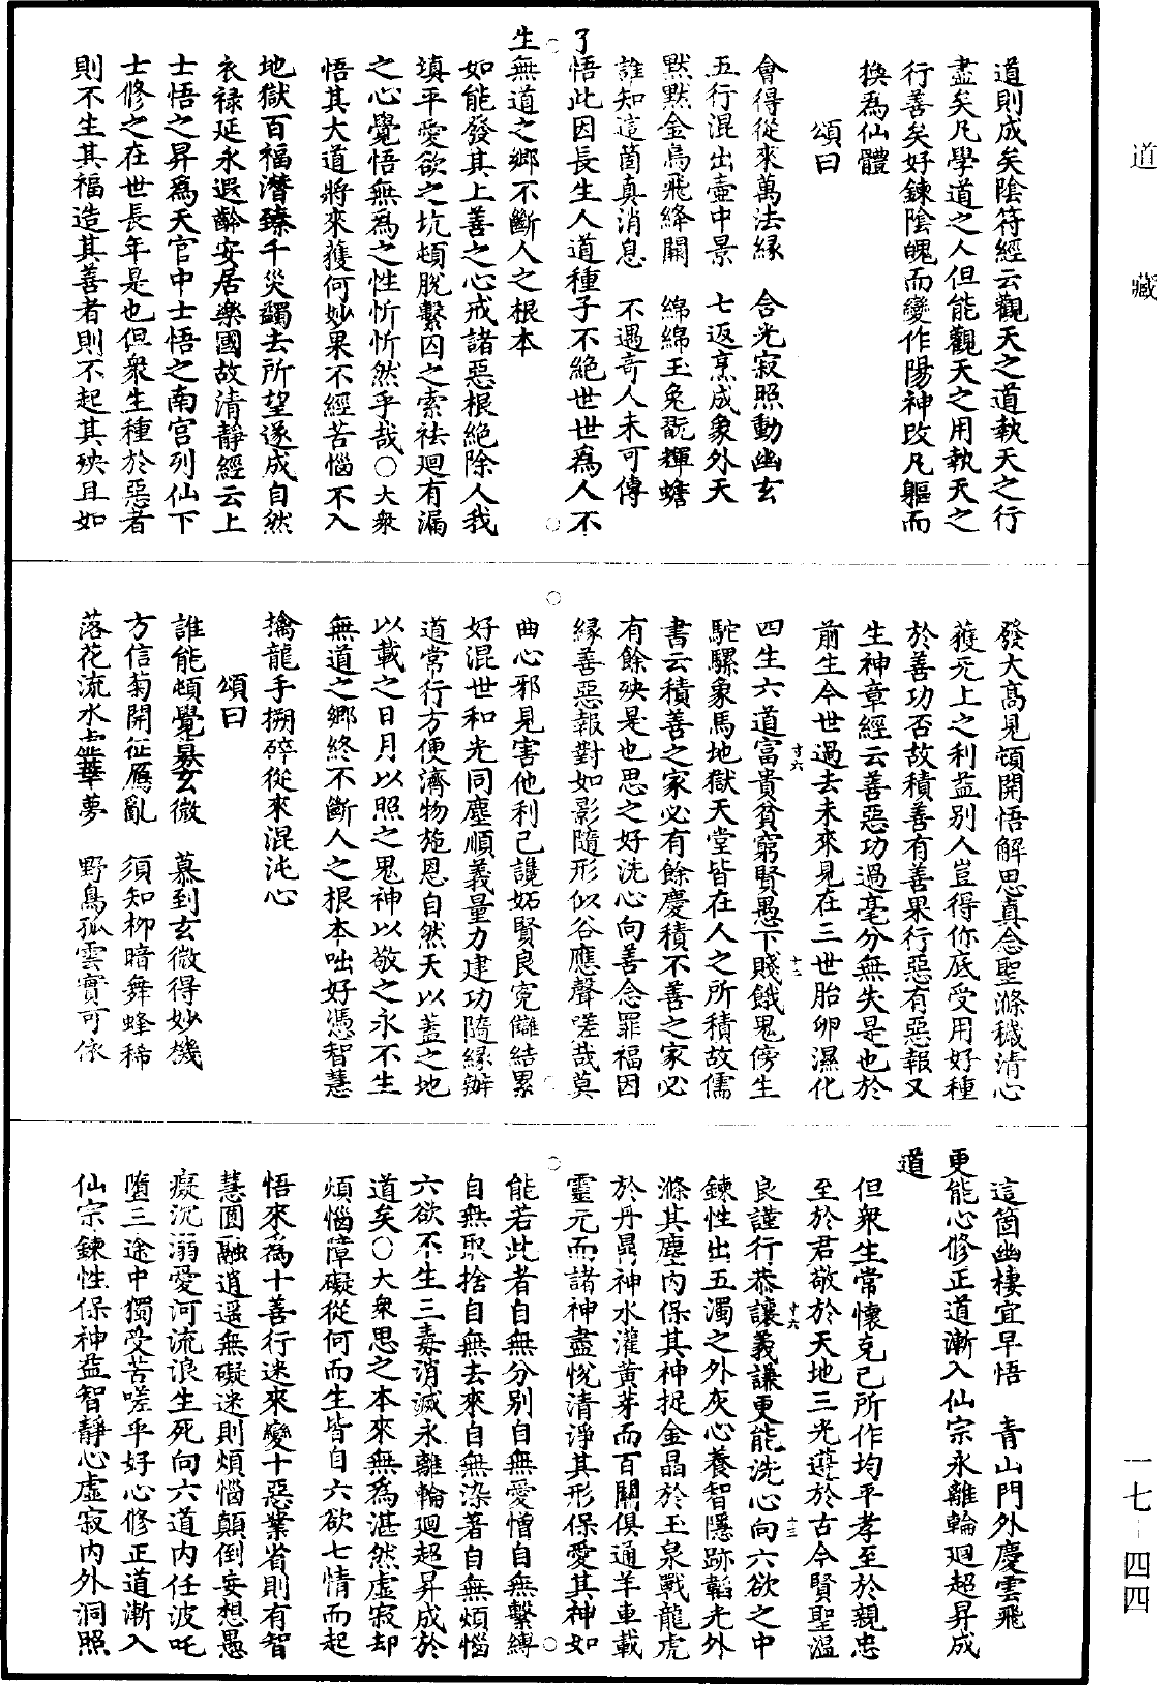 道藏
一七-四四
道則成矣陰符經云觀天之道執天之行
盡矣凡學道之人但能觀天之用執天之
行善矣好鍊陰魄而變作陽神改凡軀而
換爲仙體
頌曰
會得從來萬法緣　合光寂照動幽玄
五行混出壺中景　七返烹成象外天
黙黙金烏飛絳闕　綿綿玉兔翫輝蟾
誰知這箇真消息　不遇奇人未可傳
了悟此因長生人道種子不絶世世爲人不
生無道之鄉不斷人之根本
如能發其上善之心戒諸惡根絶除人我
填平愛欲之坑頓脫繫囚之索袪廻有漏
之心覺悟無爲之性忻忻然乎哉○大衆
悟其大道將來獲何妙果不經苦惱不入
地獄百福潛臻千災蠲去所望遂成自然
衣禄延永遐齡安居樂國故清靜經云上
士悟之昇爲天官中士悟之南宮列仙下
士修之在世長年是也但衆生種於惡者
則不生其福造其善者則不起其殃且如
發大高見頓開悟解思真念聖滌穢清心
獲无上之利益别人豈得你底受用好種
於善功否故積善有善果行惡有惡報又
生神章經云善惡功過毫分無失是也於
前生今世過去未來見在三世胎卵濕化
四生六道富貴貧窮賢愚下賤餓鬼傍生
駝騾象馬地獄天堂皆在人之所積故儒
書云積善之家必有餘慶積不善之家必
有餘殃是也思之好洗心向善念罪福因
緣善惡報對如影隨形似谷應聲嗟哉莫
曲心邪見害他利己讒妬賢良寃讎結累
好混世和光同塵順義量力建功隨緣辦
道常行方便濟物施恩自然天以蓋之地
以載之日月以照之鬼神以敬之永不生
無道之鄉終不斷人之根本咄好憑智慧
擒龍手搠碎從來混沌心
頌曰
誰能頓覺慕玄微　慕到玄微得妙機
方信菊開征鴈亂　須知柳暗舞蜂稀
落花流水虛華夢　野鳥孤雲實可依
這箇幽棲宜早悟　青山門外慶雲飛
更能心修正道漸入仙宗永離輪廻超昇成
道
但衆生常懷克己所作均平孝至於親忠
至於君敬於天地三光遵於古今賢聖溫
良謹行恭讓義謙更能洗心向六欲之中
鍊性出五濁之外灰心養智隱跡韜光外
滌其塵内保其神捉金晶於玉泉戰龍虎
於丹鼎神水灌黃芽而百關俱通羊車載
靈元而諸神盡悅清淨其形保愛其神如
能若此者自無分别自無愛憎自無繫縛
自無取捨自無去來自無染著自無煩惱
六欲不生三毒消滅永離輪廻超昇成於
道矣○大衆思之本來無爲湛然虛寂却
煩惱障礙從何而生皆自六欲七情而起
悟來爲十善行迷來變十惡業省則有智
慧圓融逍遥無礙迷則煩惱顛倒妄想愚
癡沉溺愛河流浪生死向六道内任波吒
墮三途中獨受苦嗟乎好心修正道漸入
仙宗鍊性保神益智靜心虛寂内外洞照
十六
十二
十六
十三